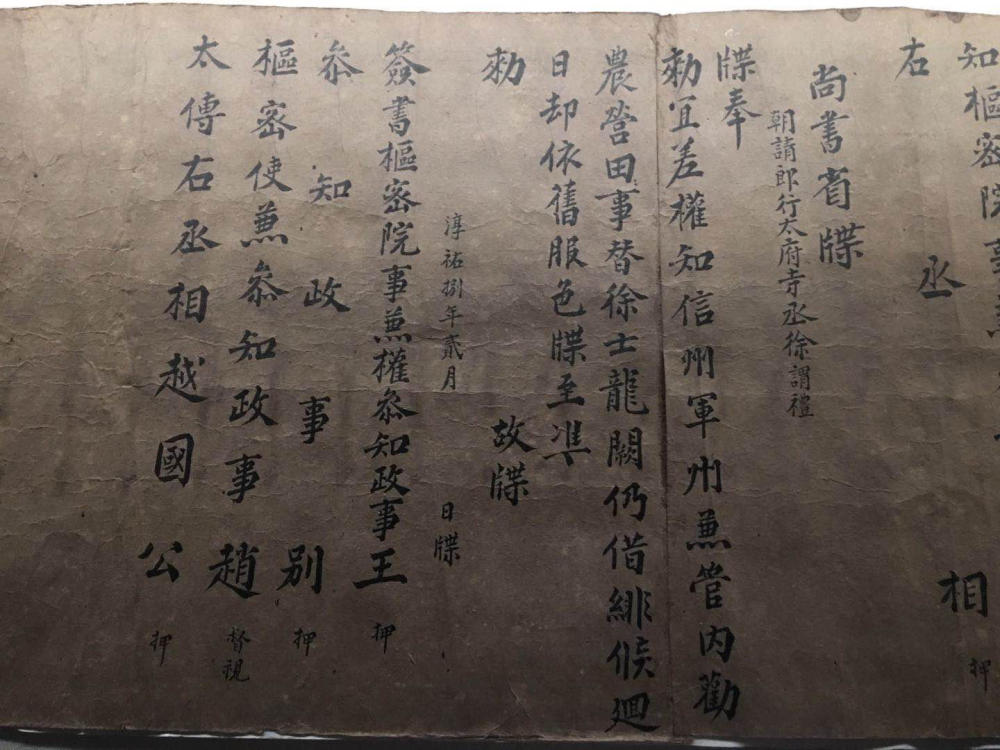 知樞密院事兼
右丞相押
尚書省牒
朝請郎行太府寺丞徐謂禮
牒奉
勑宜差權知信州軍州兼管内勸
農營田事替徐士龍闕仍借緋候廻
日却依舊服色牒至準
勑故牒
淳祐捌年貳月日牒
簽書樞密院事兼權叅知政事王押
叅知政事别押
樞密使兼叅知政事趙督視
太傅右丞相越國公押